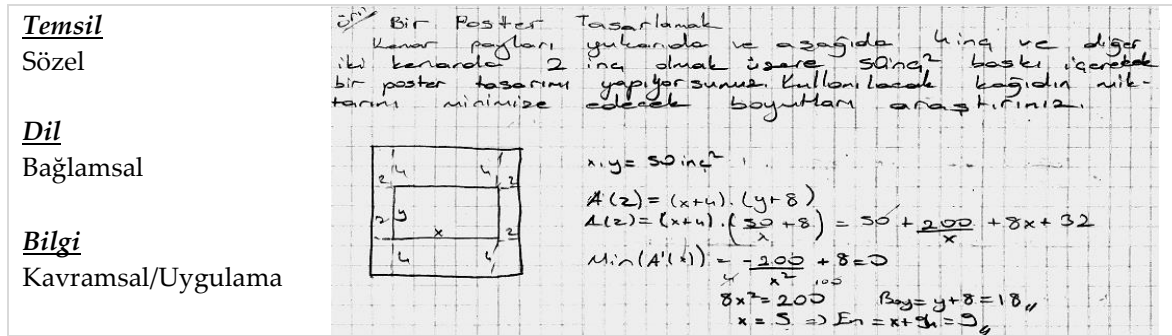 Temsil
Sözel
Dil
Bağlamsal
Bilgi
Kavramsal/Uygulama
Örn// Bir Poster Tasarlamak
Kenar payları yukarıda ve aşağıda 4 inç ve diğer
iki kenarda 2 inç olmak üzere 50inç² baskı içerecek
bir poster tasarımı yapıyorsunuz. Kullanılacak kağıdın mik-
tarını minimize edecek boyutları araştırınız.
2 4 4 2
2 y x 2
4 4
x.y = 50 inç²
A(2) = (x+4).(y+8)
A(2) = (x+4).(50/x +8) = 50 + 200/x + 8x + 32
Min(A'(x)) = -200/x² + 8 = 0
8x² = 200 Boy = y+8 = 18//
x = 5 => En = x+4 = 9//